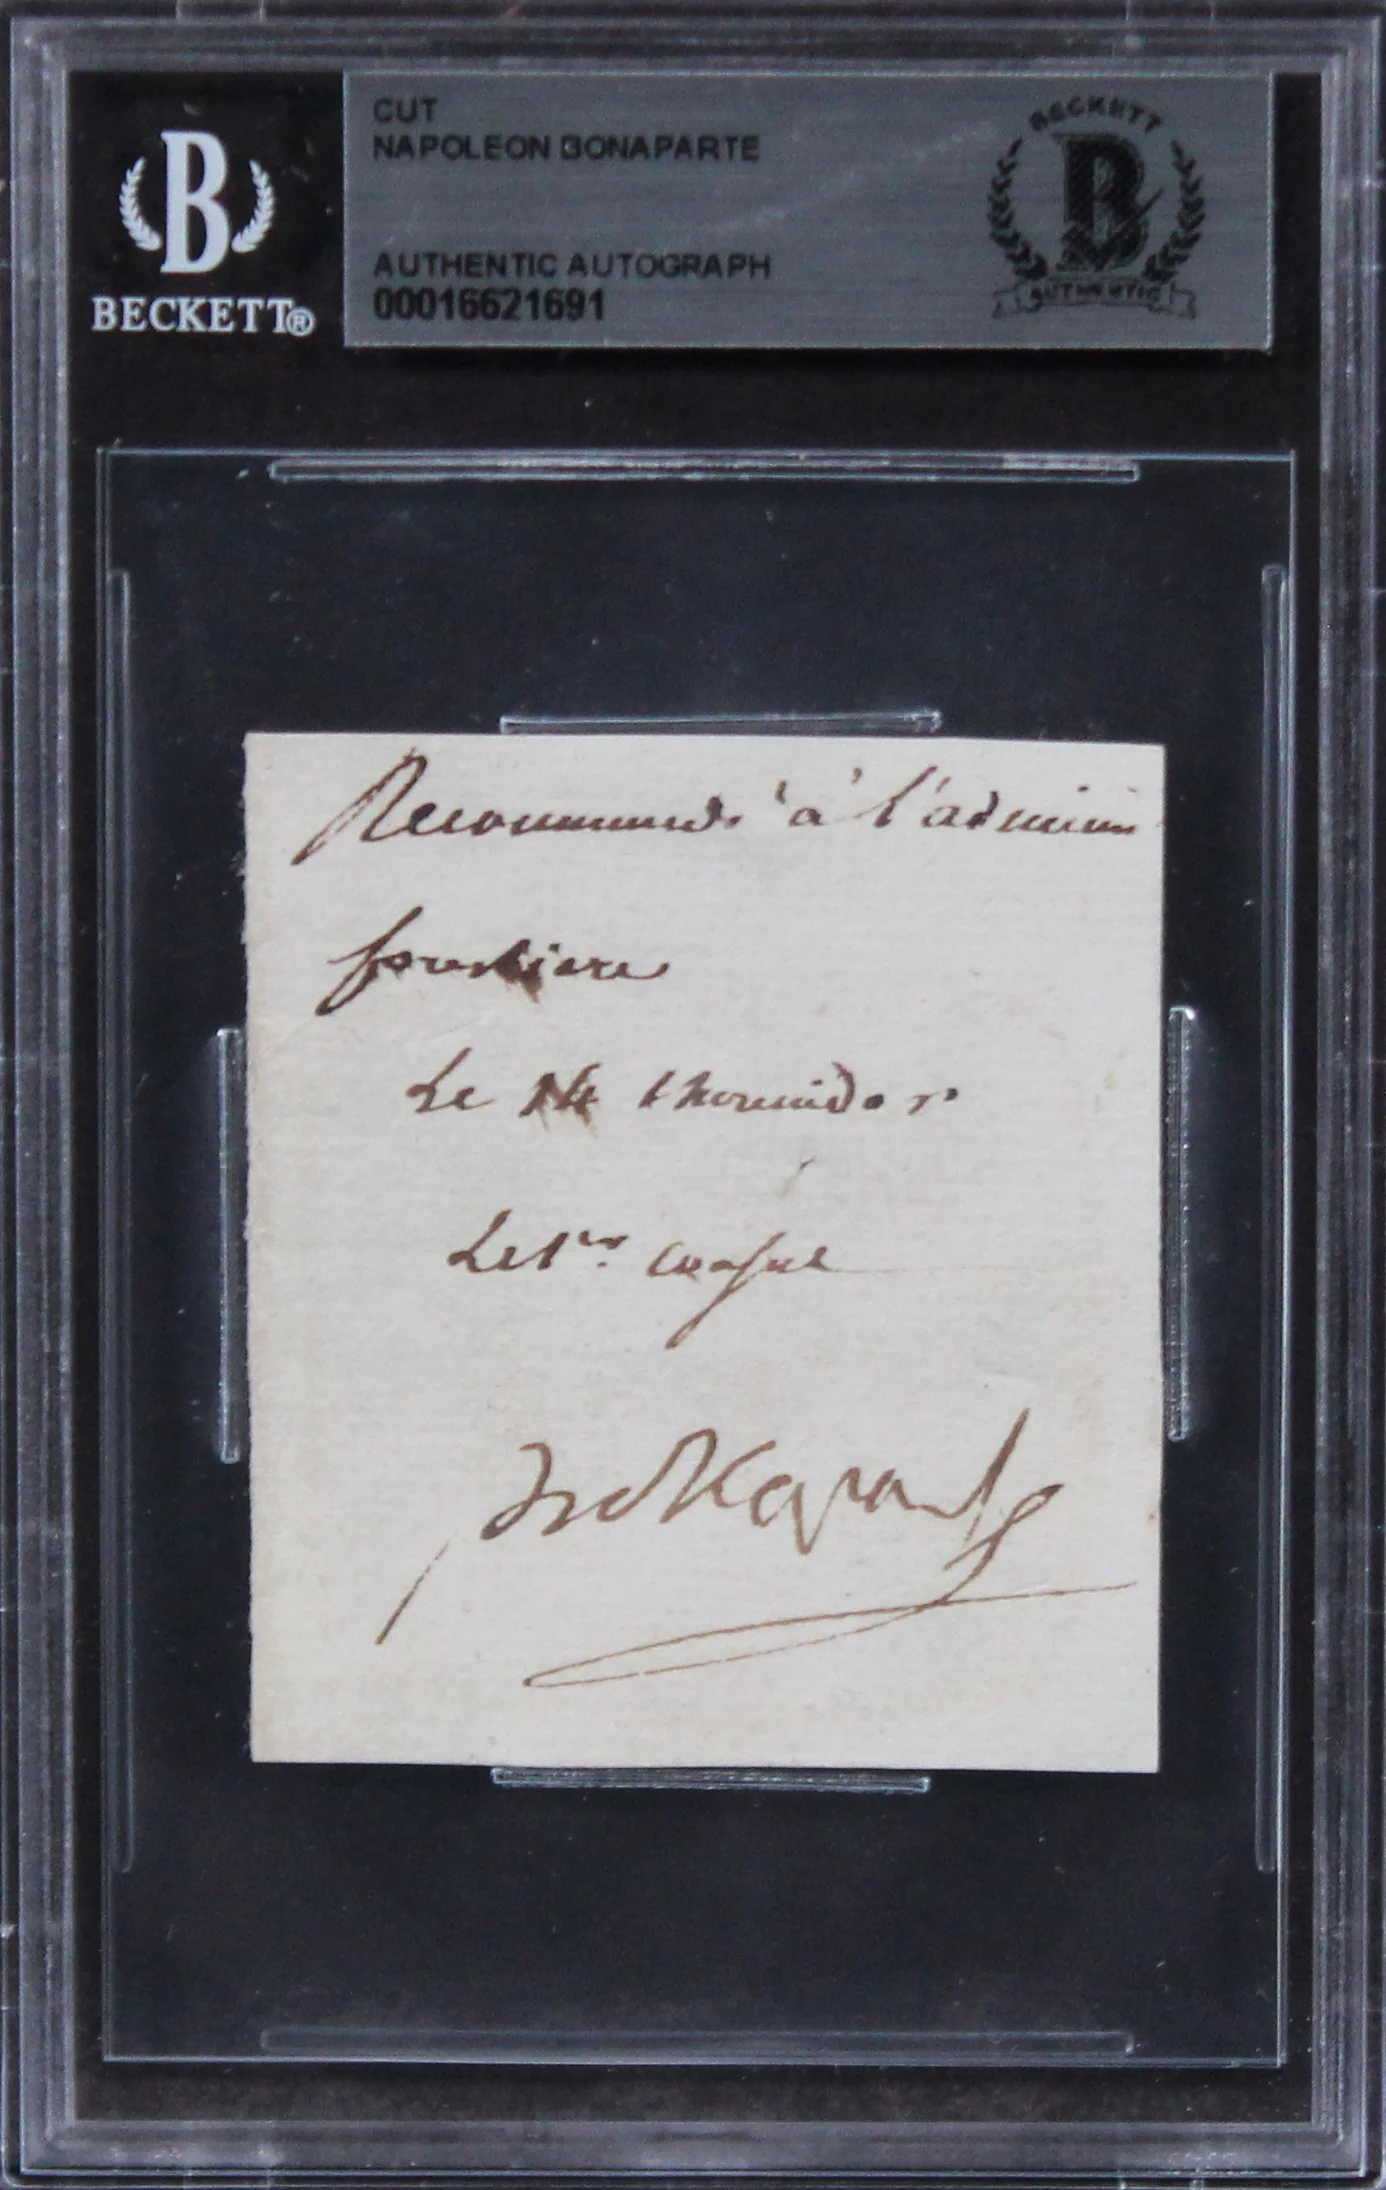 B
BECKETT®
CUT
NAPOLEON BONAPARTE
AUTHENTIC AUTOGRAPH
00016621691
BECKETT
B
AUTHENTIC
Recommandé à l'adminin
forestiere
Le 14 thermidor
Le 1er consul
Bonaparte